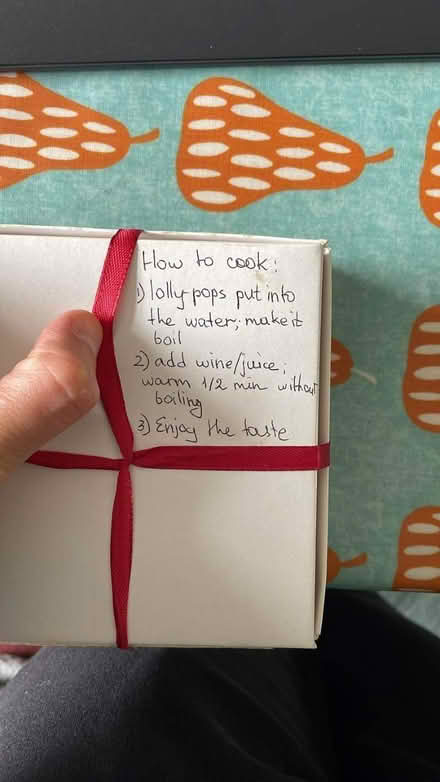 How to cook:
1) lolly-pops put into
the water; make it
boil
2) add wine/juice;
warm 1/2 min without
boiling
3) Enjoy the taste